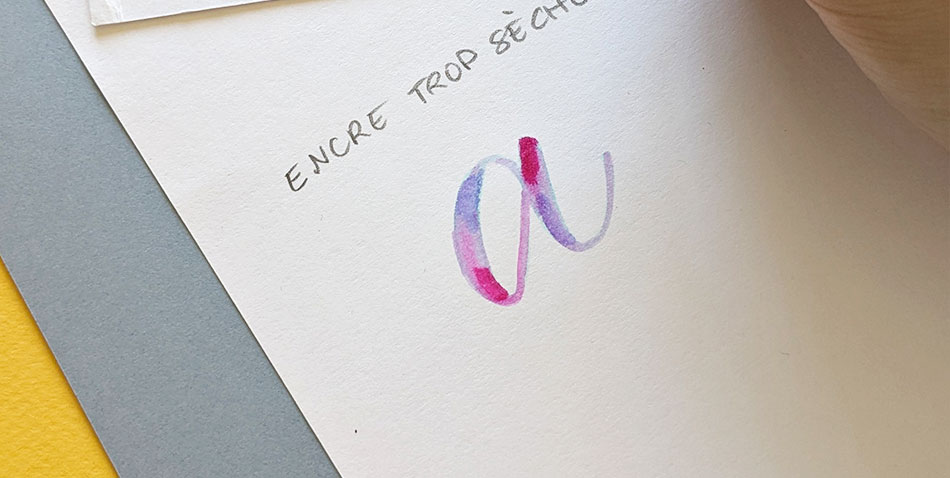 ENCRE TROP SÈCHE
a